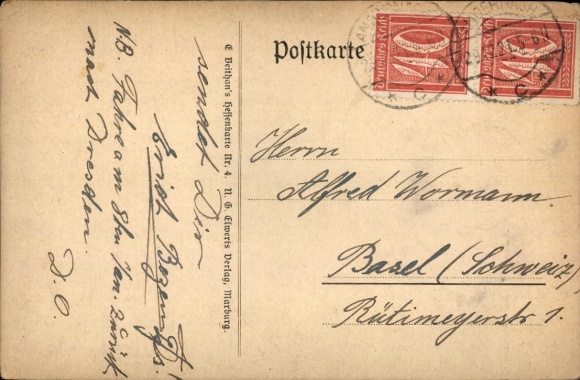 Postkarte
Deutsches Reich
40
Deutsches Reich
40
* C *
* C *
sendet Dir
Erich
N.B. Fahre am 8ten Jan.
nach Dresden.
D. O.
C. Beithan's Hessenkarte Nr. 4. N. G. Elwerts Verlag, Marburg.
Herrn
Alfred Wormann
Basel (Schweiz)
Rütimeyerstr 1.